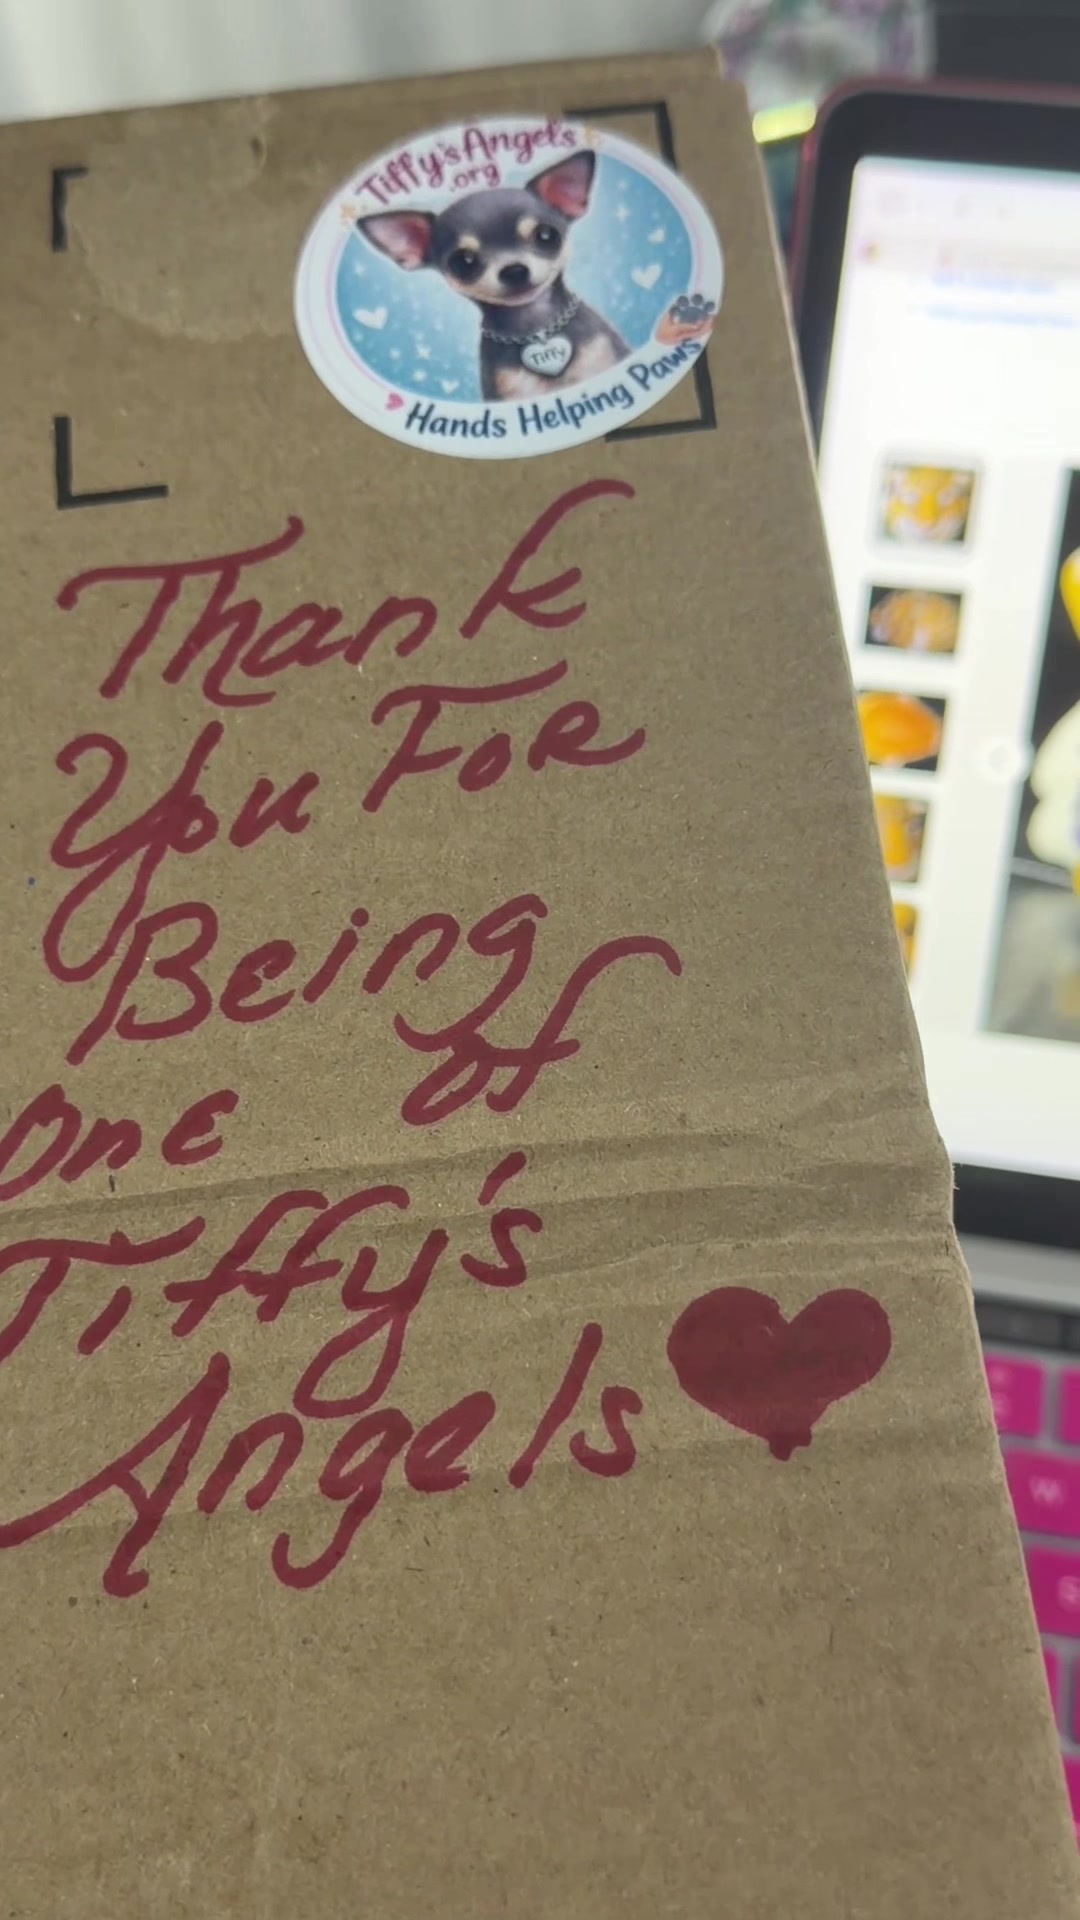 Tiffy'sAngels
.org
Tiffy
Hands Helping Paws
Thank
You FoR
Being
One of
Tiffy's
Angels
W
S